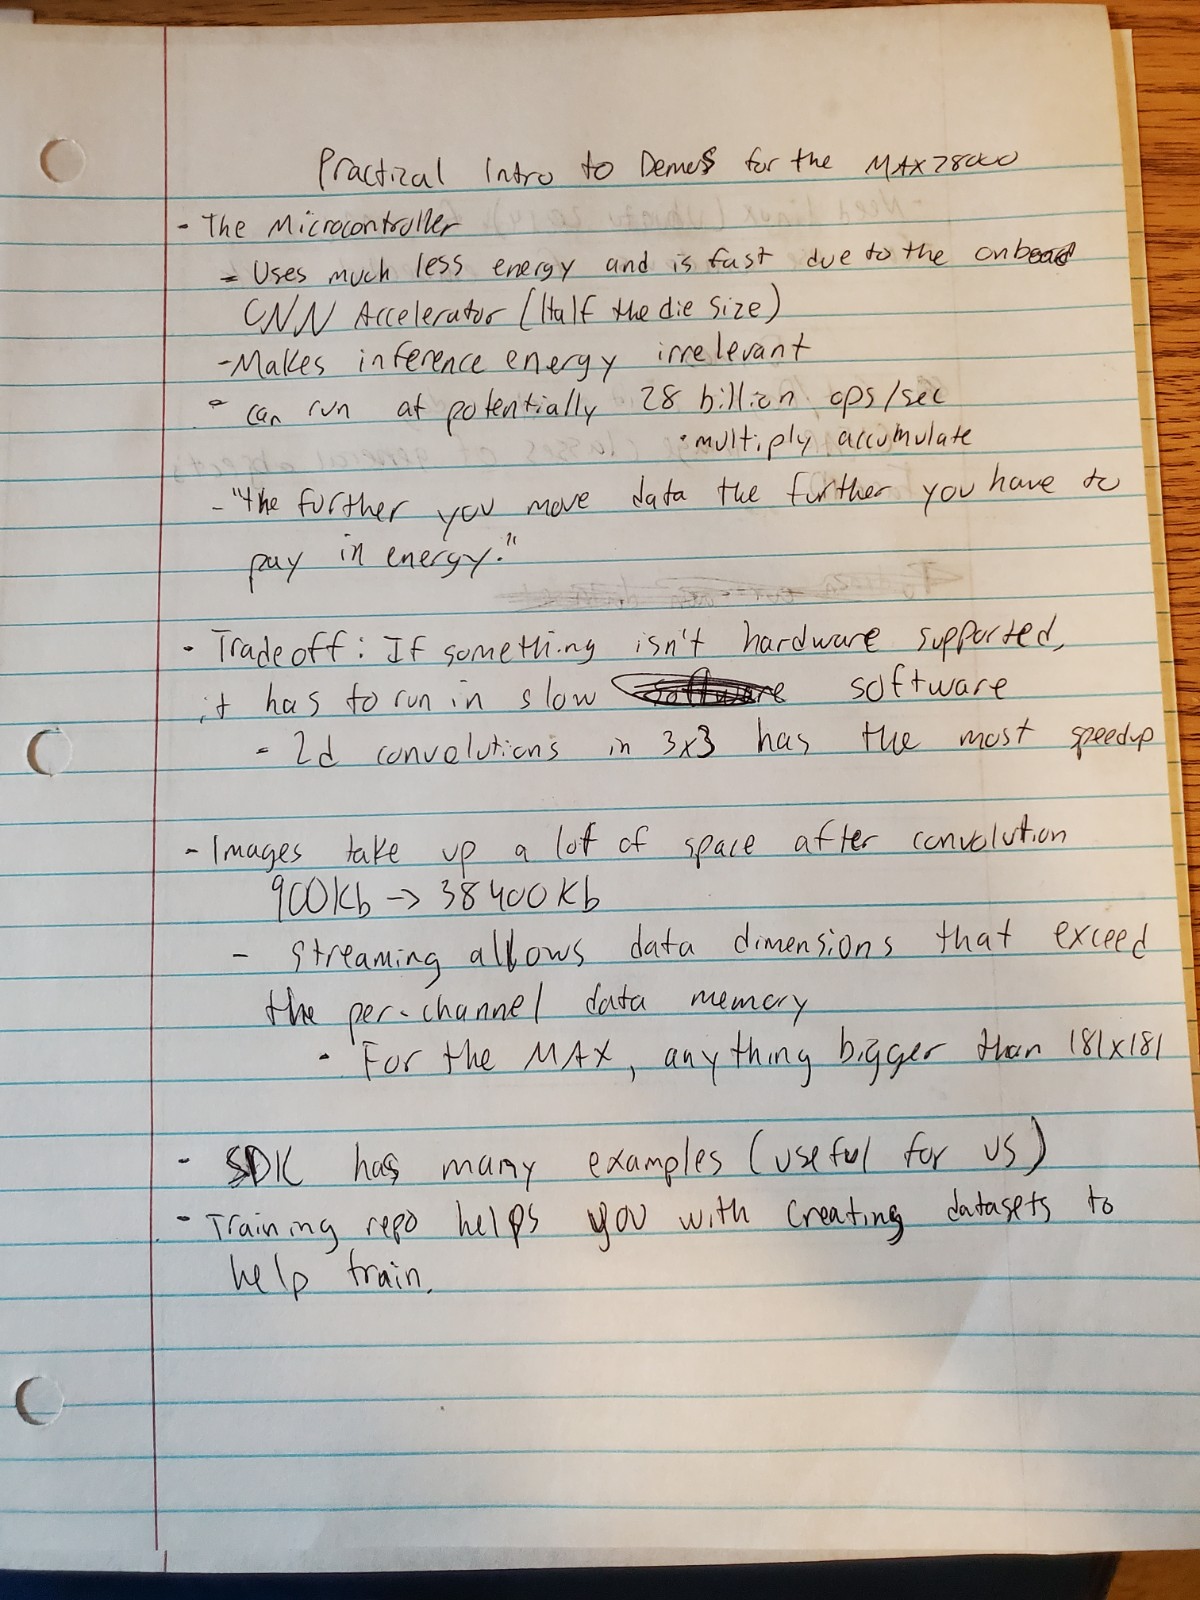 Practical Intro to Demos for the MAX78000
- The Microcontroller
- Uses much less energy and is fast due to the onboard
CNN Accelerator (Half the die size)
- Makes inference energy irrelevant
- can run at potentially 28 billion ops/sec
· multiply accumulate
- "the further you move data the further you have to
pay in energy."
- Tradeoff: If something isn't hardware supported,
it has to run in slow software software
- 2d convolutions in 3x3 has the most speedup
- Images take up a lot of space after convolution
900kb -> 38400kb
- streaming allows data dimensions that exceed
the per-channel data memory
· For the MAX, anything bigger than 181x181
- SDK has many examples (useful for us)
- Training repo helps you with creating datasets to
help train.